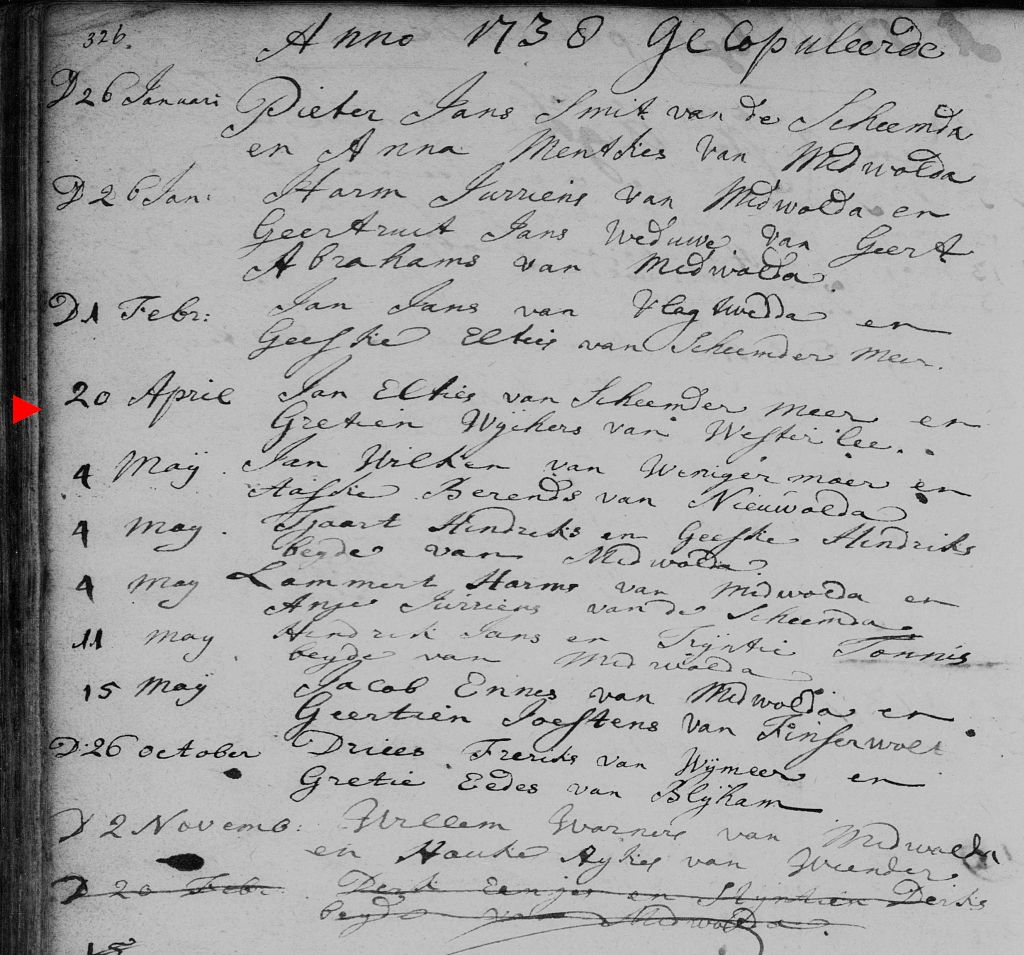 326.
Anno 1738 Gecopuleerde
D 26 Januari Pieter Jans Smit van de Scheemda
en Anna Mentkes van Midwolda
D 26 Jan: Harm Jurriens van Midwolda en
Geertruit Jans Weduwe van Geert
Abrahams van Midwolda.
D 1 Febr: Jan Jans van Vlagtwedda en
Geeske Elties van Scheemder meer.
20 April Jan Elties van Scheemder meer en
Gretien Wychers van Westerlee.
4 May Jan Wilken van Weniger moer en
Berends van Nieuwolda
4 may Tjaart Hindriks en Geeske Hindriks
beyde van Midwolda
4 may Lammert Harms van Midwolda en
Anje Jurriens van de Scheemda.
11 may Hindrik Jans en Tryntie Tonnis
beyde van Midwolda
15 may Jacob Ennes van Midwolda en
Geertien Joestens van Finserwolt
D 26 october Driees Freriks van Wymeer en
Gretie Eedes van Blyham
D 2 Novemb: Willem Warners van Midwolda
en Hauke Aykes van Weender
D 20 Febr en Styntien Derks
beyde van Midwolda.